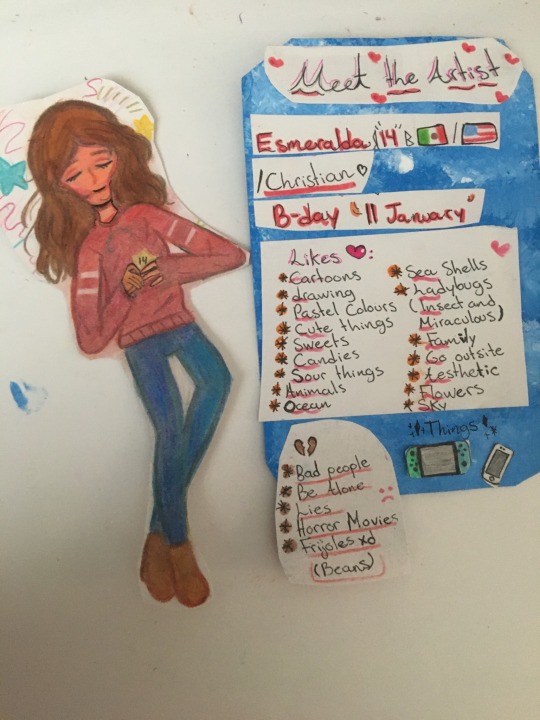 Meet the Artist
Esmeralda / "14" B /
/Christian
B-day "11 January"
Likes :
Cartoons
drawing
Pastel Colours
Cute things
Sweets
Candies
Sour things
Animals
Ocean
Sea Shells
Ladybugs
(Insect and
Miraculous)
Family
Go outsite
Aesthetic
Flowers
Sky
Things
Bad people
Be Alone
Lies
Horror Movies
Frijoles xd
(Beans)
14